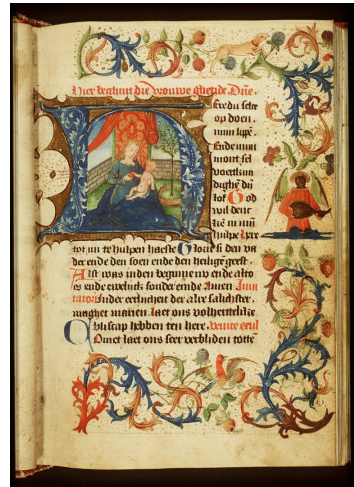 Hier beghint die vrouwe ghetide Dñe.
Here du selte
op doen.
minn lippē.
Ende minē
mont sel
voertkun
dighē dijn
lof God
wil denc
kē in min
hulpe here
tot mi te hulpen haeste Glorie si den va
der ende den soen ende den heilighe geest.
Alst was inden beginne nv ende alto
es ende ewelick sonder ende Amen Inui
tatoriū inder eerlicheit der alre salichster.
maghet marien laet ons volherttelike
bliscap hebben ten here. venite exul
Comet laet ons seer verbliden totten